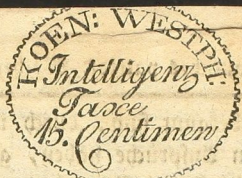 KOEN: WESTPH:
Intelligenz
Taxce
15. Centimen